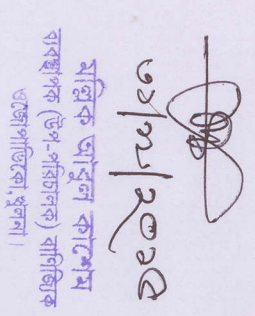 ৩১/১২/২০১৫
মল্লিক আবুল কাশেম
ব্যবস্থাপক (উপ-পরিচালক) বাণিজ্যিক
ওজোপাডিকো, খুলনা।